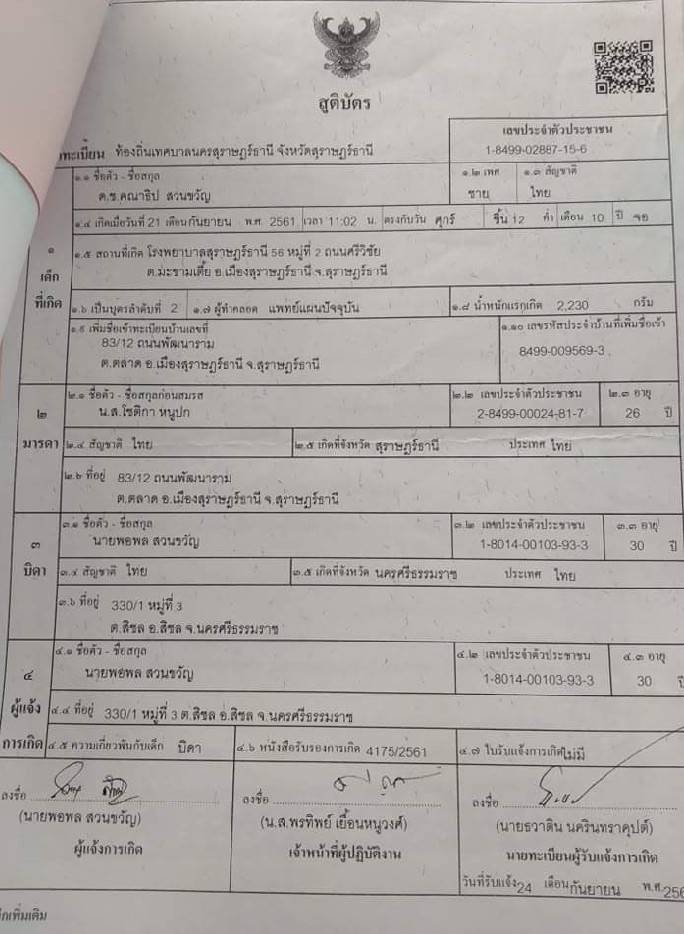 สูติบัตร
เลขประจำตัวประชาชน
ทะเบียน ท้องถิ่นเทศบาลนครสุราษฎร์ธานี จังหวัดสุราษฎร์ธานี
1-8499-02887-15-6
๑.๑ ชื่อตัว - ชื่อสกุล
๑.๒ เพศ
๑.๓ สัญชาติ
ด.ช.คณาธิป สวนขวัญ
ชาย
ไทย
๑.๔ เกิดเมื่อวันที่ 21 เดือน กันยายน พ.ศ. 2561 เวลา 11:02 น. ตรงกับวัน ศุกร์ ขึ้น 12 ค่ำ เดือน 10 ปี จอ
๑
เด็ก
ที่เกิด
๑.๕ สถานที่เกิด โรงพยาบาลสุราษฎร์ธานี 56 หมู่ที่ 2 ถนนศรีวิชัย
ต.มะขามเตี้ย อ.เมืองสุราษฎร์ธานี จ.สุราษฎร์ธานี
๑.๖ เป็นบุตรลำดับที่ 2 ๑.๗ ผู้ทำคลอด แพทย์แผนปัจจุบัน
๑.๘ น้ำหนักแรกเกิด 2,230 กรัม
๑.๙ เพิ่มชื่อเข้าทะเบียนบ้านเลขที่
๑.๑๐ เลขรหัสประจำบ้านที่เพิ่มชื่อเข้า
83/12 ถนนพัฒนาราม
8499-009569-3
ต.ตลาด อ.เมืองสุราษฎร์ธานี จ.สุราษฎร์ธานี
๒
มารดา
๒.๑ ชื่อตัว - ชื่อสกุลก่อนสมรส
๒.๒ เลขประจำตัวประชาชน
๒.๓ อายุ
น.ส.โชติกา หนูปก
2-8499-00024-81-7
26 ปี
๒.๔ สัญชาติ ไทย
๒.๕ เกิดที่จังหวัด สุราษฎร์ธานี ประเทศ ไทย
๒.๖ ที่อยู่ 83/12 ถนนพัฒนาราม
ต.ตลาด อ.เมืองสุราษฎร์ธานี จ.สุราษฎร์ธานี
๓
บิดา
๓.๑ ชื่อตัว - ชื่อสกุล
๓.๒ เลขประจำตัวประชาชน
๓.๓ อายุ
นายพอพล สวนขวัญ
1-8014-00103-93-3
30 ปี
๓.๔ สัญชาติ ไทย
๓.๕ เกิดที่จังหวัด นครศรีธรรมราช ประเทศ ไทย
๓.๖ ที่อยู่ 330/1 หมู่ที่ 3
ต.สิชล อ.สิชล จ.นครศรีธรรมราช
๔
ผู้แจ้ง
การเกิด
๔.๑ ชื่อตัว - ชื่อสกุล
๔.๒ เลขประจำตัวประชาชน
๔.๓ อายุ
นายพอพล สวนขวัญ
1-8014-00103-93-3
30 ปี
๔.๔ ที่อยู่ 330/1 หมู่ที่ 3 ต.สิชล อ.สิชล จ.นครศรีธรรมราช
๔.๕ ความเกี่ยวพันกับเด็ก บิดา
๔.๖ หนังสือรับรองการเกิด 4175/2561
๔.๗ ใบรับแจ้งการเกิด ไม่มี
ลงชื่อ
ลงชื่อ
ลงชื่อ
(นายพอพล สวนขวัญ)
(น.ส.พรทิพย์ เยื้อนหนูวงศ์)
(นายธวาดิน นครินทราคุปต์)
ผู้แจ้งการเกิด
เจ้าหน้าที่ผู้ปฏิบัติงาน
นายทะเบียนผู้รับแจ้งการเกิด
วันที่รับแจ้ง 24 เดือน กันยายน พ.ศ. 256
ึกเพิ่มเติม